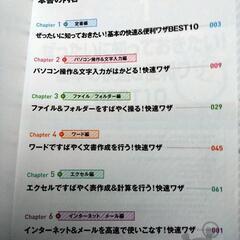 本書の内容
Chapter 1 定番編
ぜったいに知っておきたい!基本の快速&便利ワザBEST10 003
Chapter 2 パソコン操作&文字入力編
パソコン操作&文字入力がはかどる!快速ワザ 009
Chapter 3 ファイル/フォルダー編
ファイル&フォルダーをすばやく操る!快速ワザ 029
Chapter 4 ワード編
ワードですばやく文書作成を行う!快速ワザ 045
Chapter 5 エクセル編
エクセルですばやく表作成&計算を行う!快速ワザ 061
Chapter 6 インターネット/メール編
インターネット&メールを高速で使いこなす!快速ワザ 081